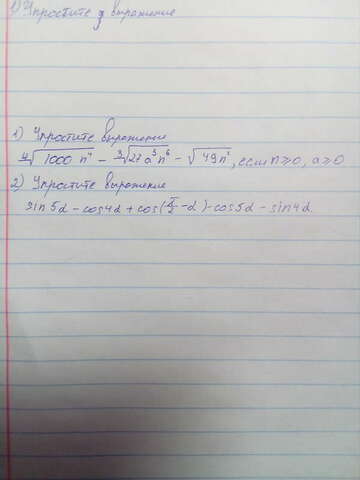 1) Упростите выражение
1) Упростите выражение
∜1000 n⁴ − ∛27a³n⁶ − √49n², если n⩾0, a⩾0
2) Упростите выражение
sin5α − cos4α + cos(π/2 − α) − cos5α − sin4α.